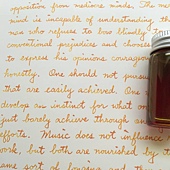 opposition from mediocre minds. The me
mind is incapable of understanding th
man who refuses to bow blindly
conventional prejudices and chooses
to express his opinions courageou
honestly. One should not pursu
that are easily achieved. One
develop an instinct for what on
just barely achieve through
efforts. Music does not influence
work, but both are nourished by th
same sort of longing and th